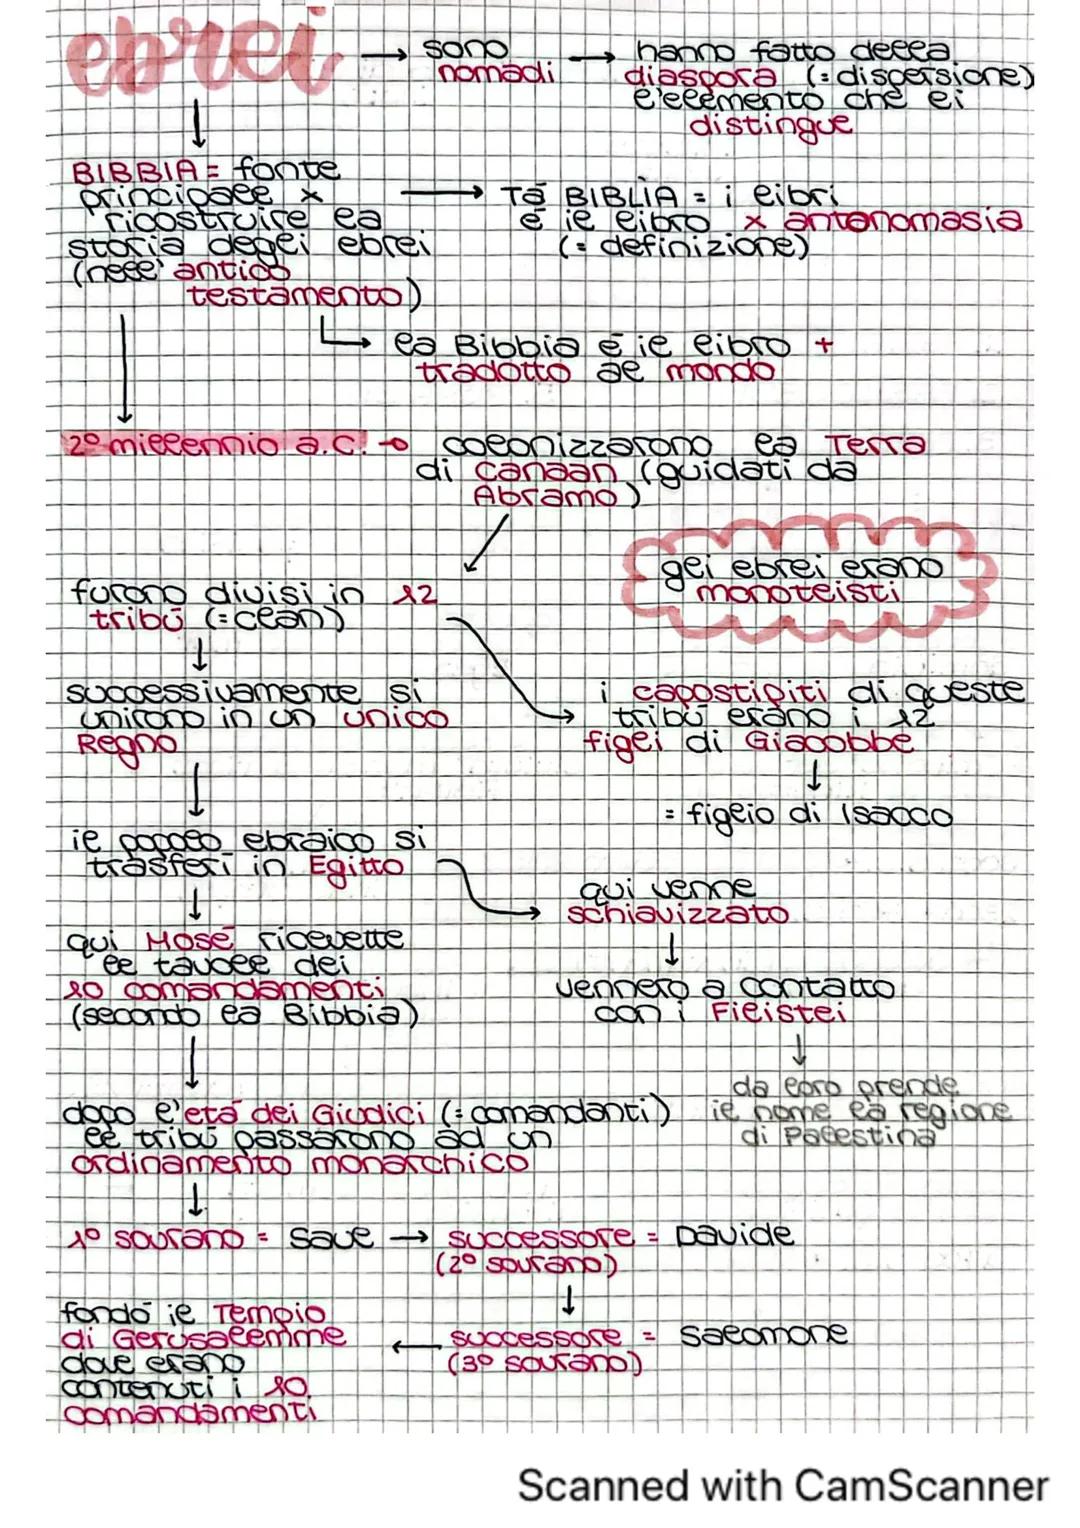 ebrei → sono nomadi → hanno fatto della
diaspora (=dispersione)
l'elemento che li
distingue
BIBBIA = fonte
principale x
ricostruire la
storia degli ebrei
(nell'antico
testamento)
→ Tá BIBLÌA = i libri
é il libro x antonomasia
(= definizione)
la Bibbia é il libro +
tradotto al mondo
2° millennio a.C. → colonizzarono la Terra
di Canaan (guidati da
Abramo)
gli ebrei erano
monoteisti
furono divisi in 12
tribú (=clan)
successivamente si
unirono in un unico
Regno
i capostipiti di queste
tribú erano i 12
figli di Giacobbe
↓
= figlio di Isacco
il popolo ebraico si
trasferí in Egitto
qui venne
schiavizzato
↓
vennero a contatto
con i Filistei
↓
da loro prende
il nome la regione
di Palestina
qui Mosé ricevette
le tavole dei
10 comandamenti
(secondo la Bibbia)
dopo l'etá dei Giudici (=comandanti)
le tribú passarono ad un
ordinamento monarchico
1° sovrano = Saul → successore = Davide
(2° sovrano)
↓
successore = Salomone
(3° sovrano)
fondó il Tempio
di Gerusalemme
dove erano
contenuti i 10
comandamenti
Scanned with CamScanner